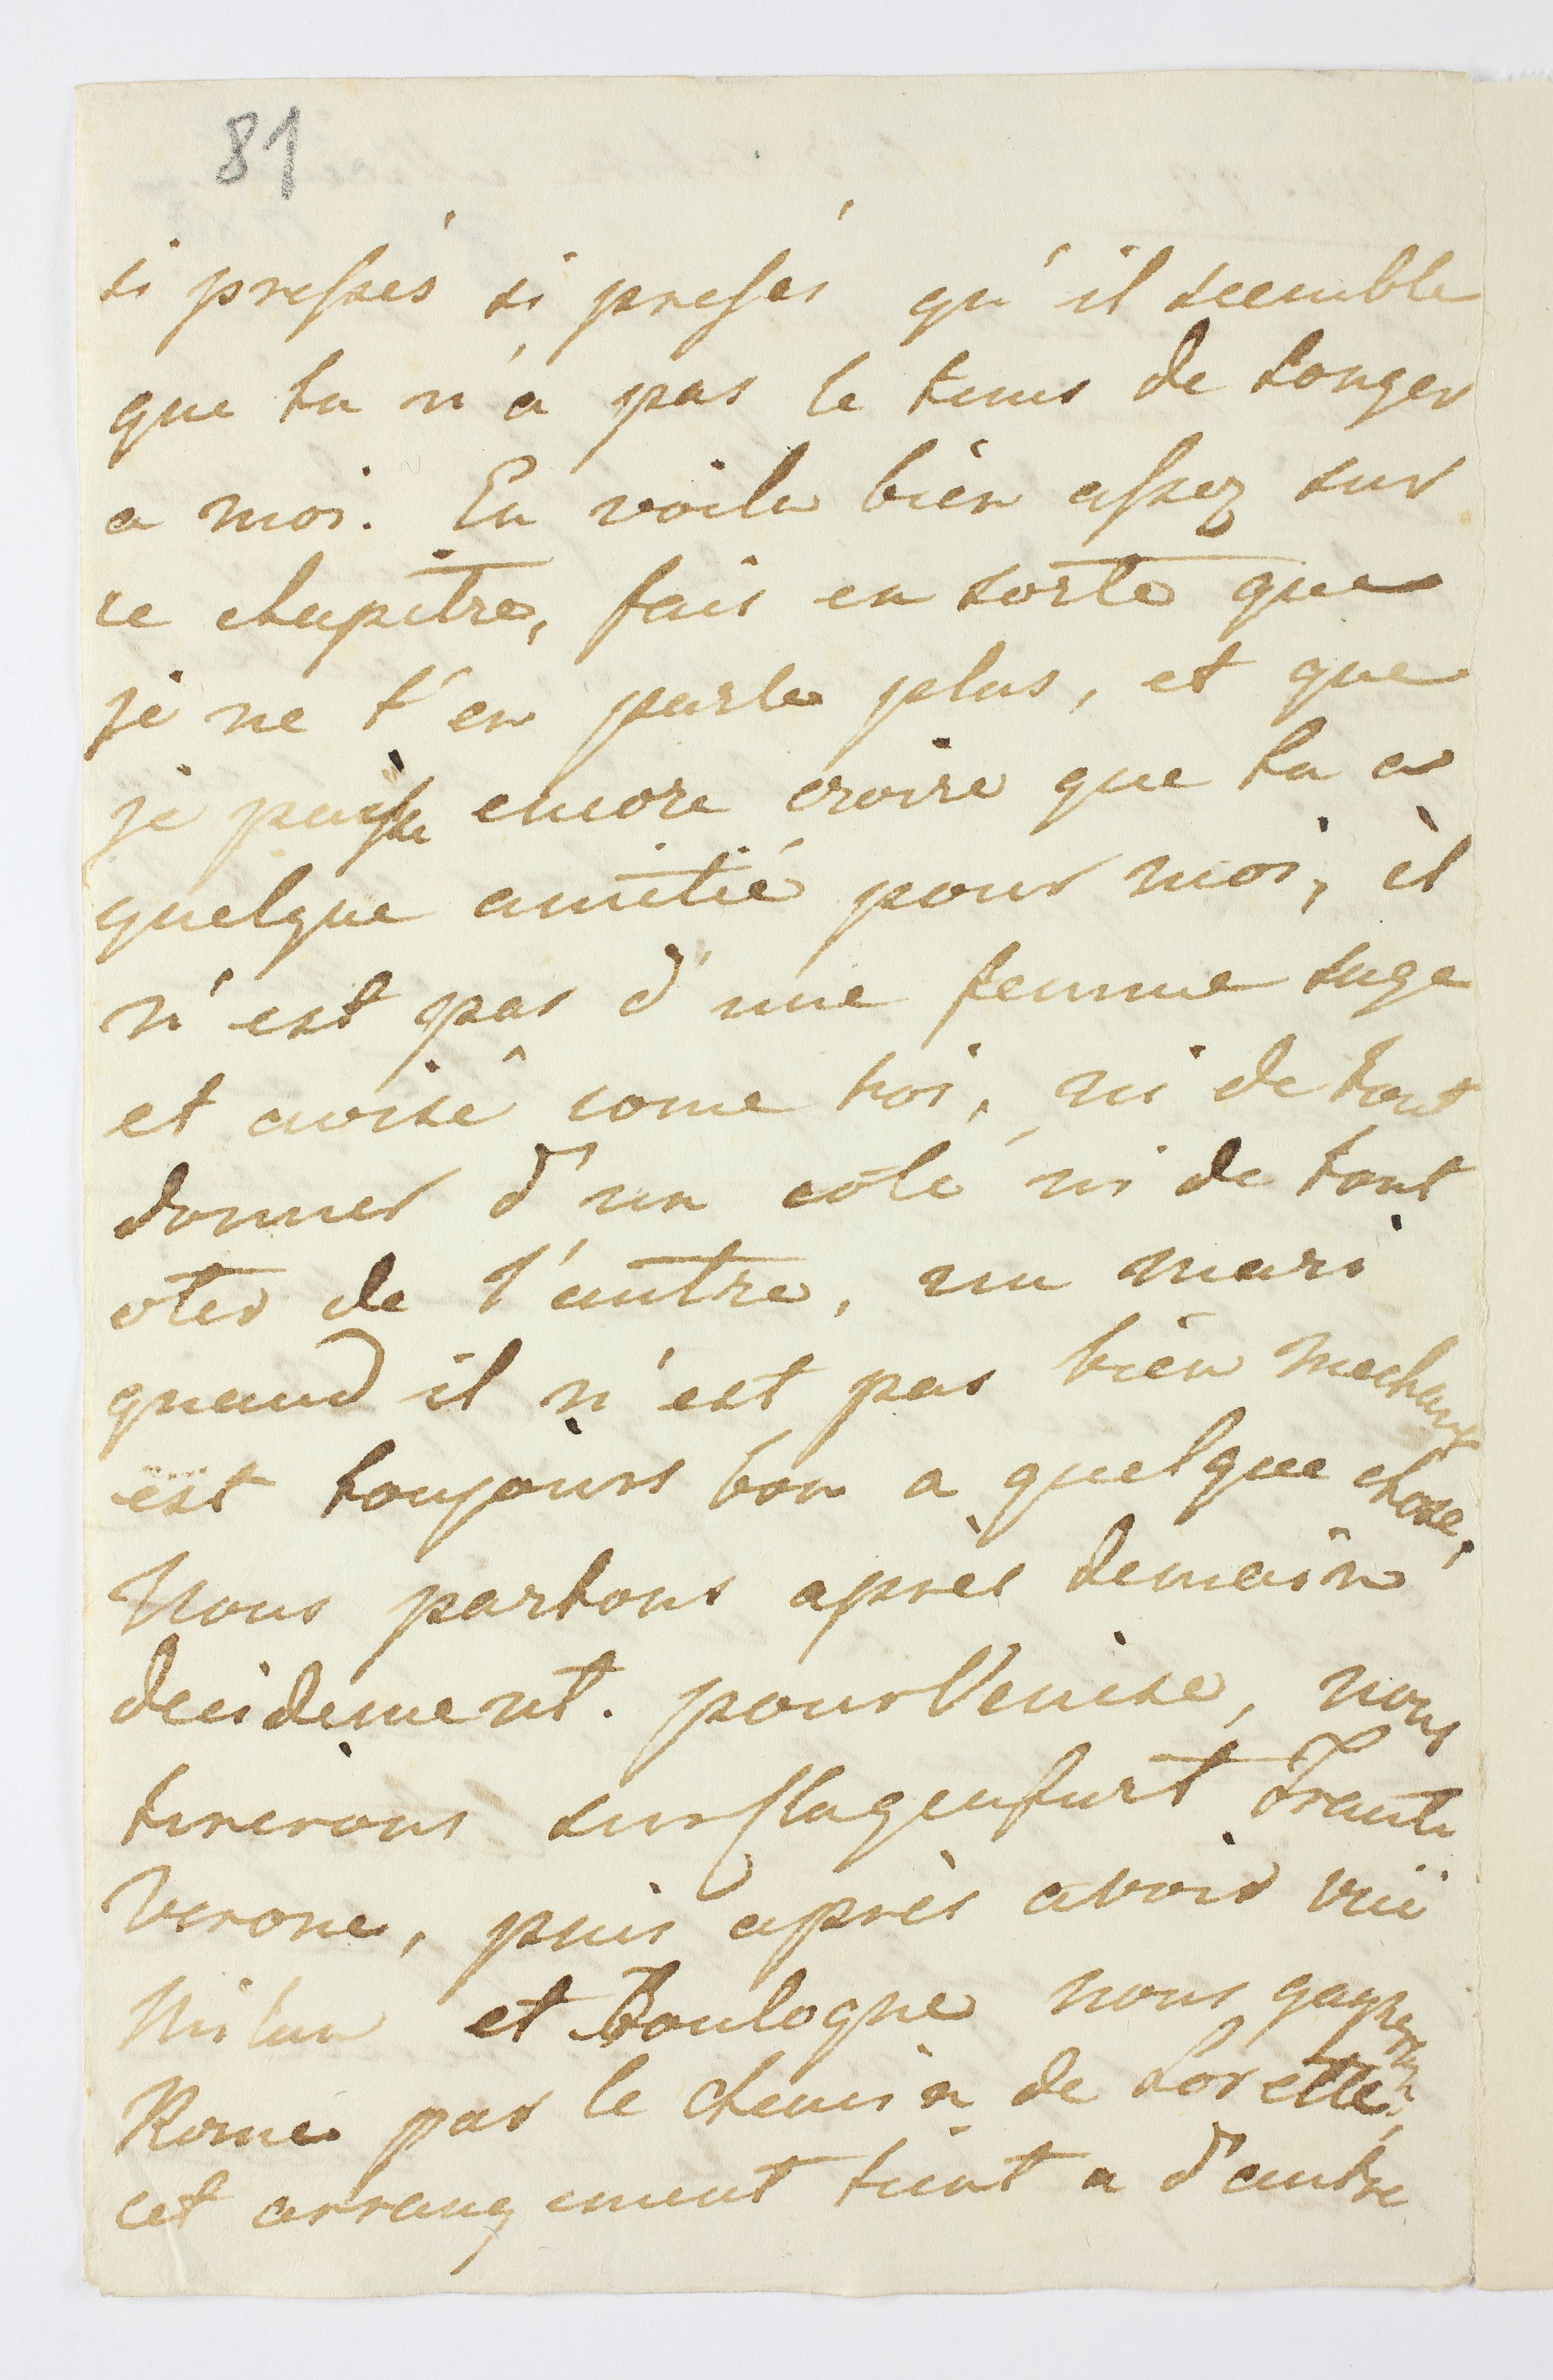 81
si pressés si pressés qu'il seemble
que tu n'a pas le tems de songer
a moi. En voila bien assez sur
ce chapitre, fais en sorte que
je ne t'en parle plus, et que
je puisse encore croire que tu a
quelque amitié pour moi, il
n'est pas d'une femme sage
et avisé come toi, ni de tout
donner d'un coté ni de tout
oter de l'autre, un mari
quand il n'est pas bien mechant
est toujours bon a quelque chose,
Nous partons après demain
decidement. pour Venise, nous
tirerons sur Clagenfurt Trente
Verone, puis après avoir vüe
Milan et Boulogne nous
Rome par le chemin de Lorette,
cet arrangement tient a d'autre